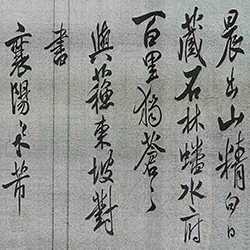 晨出山精白日
藏石林蟠水府
百里猶蒼〻
與蘓東坡對
書
襄陽米芾